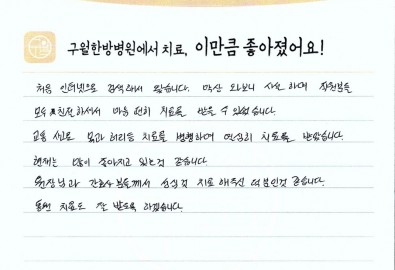 구월한방병원에서 치료, 이만큼 좋아졌어요!
처음 인터넷으로 검색해서 왔습니다. 막상 와보니 시설 하며 직원분들
모두 친절하셔서 마음 편히 치료를 받을 수 있었습니다.
교통 사고로 목과 허리등 치료를 병행하며 열심히 치료를 받았습니다.
현재는 많이 좋아지고 있는것 같습니다.
원장님과 간호사분들께서 신경 치료해주신 덕분인것 같습니다.
통원 치료도 잘 받도록 하겠습니다.